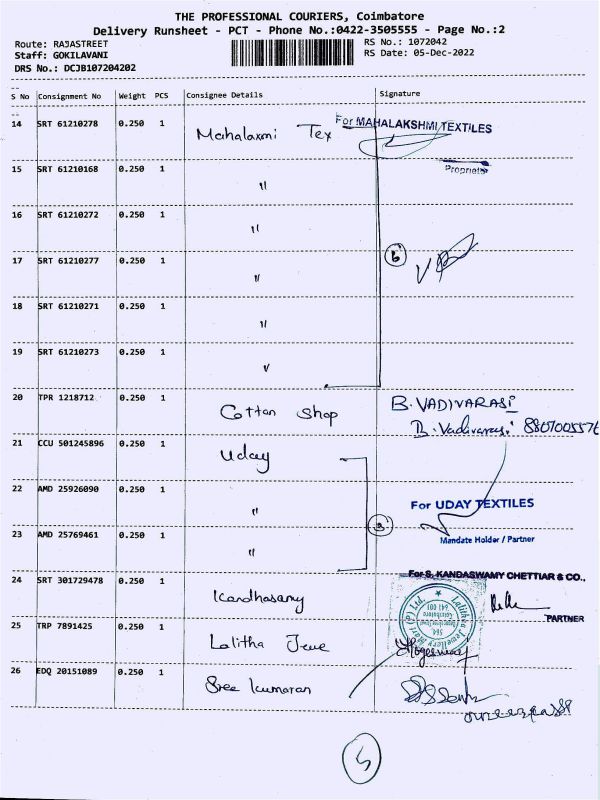 THE PROFESSIONAL COURIERS, Coimbatore
Delivery Runsheet - PCT - Phone No.:0422-3505555 - Page No.:2
Route: RAJASTREET RS No.: 1072042
Staff: GOKILAVANI RS Date: 05-Dec-2022
DRS No.: DCJB107204202
S No Consignment No Weight PCS Consignee Details Signature
14 SRT 61210278 0.250 1 Mahalaxmi Tex For MAHALAKSHMI TEXTILES
Proprietor
15 SRT 61210168 0.250 1 "
16 SRT 61210272 0.250 1 "
17 SRT 61210277 0.250 1 " 6
18 SRT 61210271 0.250 1 "
19 SRT 61210273 0.250 1 "
20 TPR 1218712 0.250 1 Cotton Shop B. VADIVARASI
B. Vadivarasi 8807005576
21 CCU 501245896 0.250 1 Uday
22 AMD 25926090 0.250 1 " For UDAY TEXTILES
23 AMD 25769461 0.250 1 " 3
Mandate Holder / Partner
24 SRT 301729478 0.250 1 Kandhasamy For S. KANDASWAMY CHETTIAR & CO.,
PARTNER
Lalitha Jewellery Mart (P) Ltd.
25 TRP 7891425 0.250 1 Lalitha Jewe
26 EDQ 20151089 0.250 1 Sree Kumaran
5